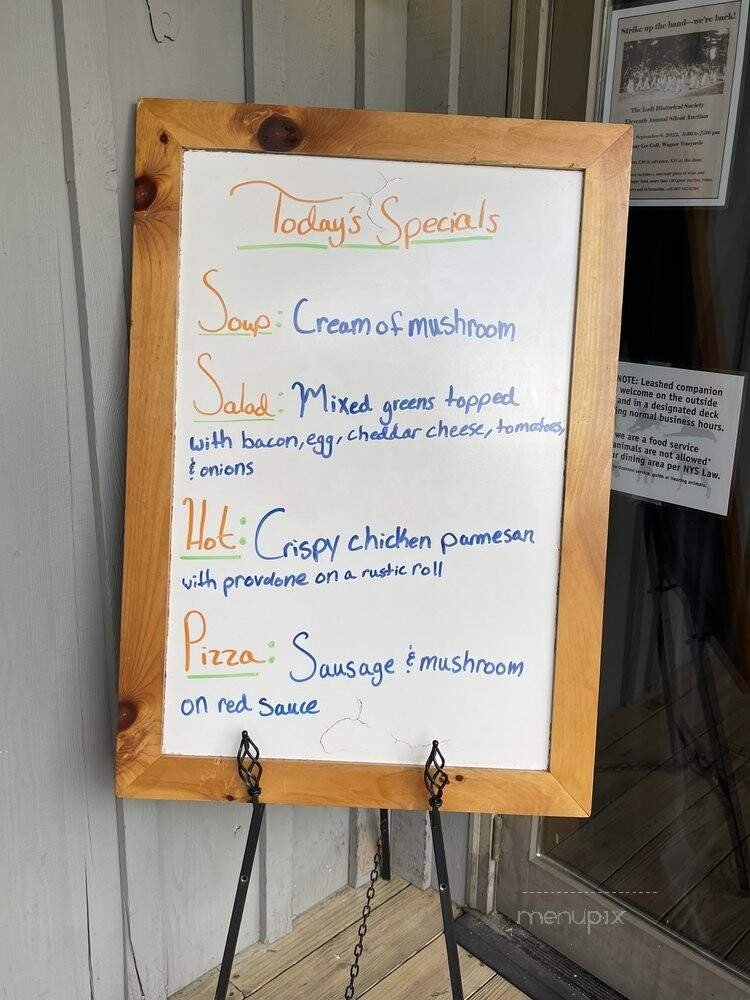 Today's Specials
Soup: Cream of mushroom
Salad: Mixed greens topped
with bacon, egg, cheddar cheese, tomatoes,
& onions
Hot: Crispy chicken parmesan
with provolone on a rustic roll
Pizza: Sausage & mushroom
on red sauce
Strike up the band—we're back!
The Lodi Historical Society
Eleventh Annual Silent Auction
September 8, 2022, 5:30 to 7:30 pm
Lee Café, Wagner Vineyards
NOTE: Leashed companion
welcome on the outside
and in a designated deck
normal business hours.
we are a food service
animals are not allowed*
dining area per NYS Law.
menupix